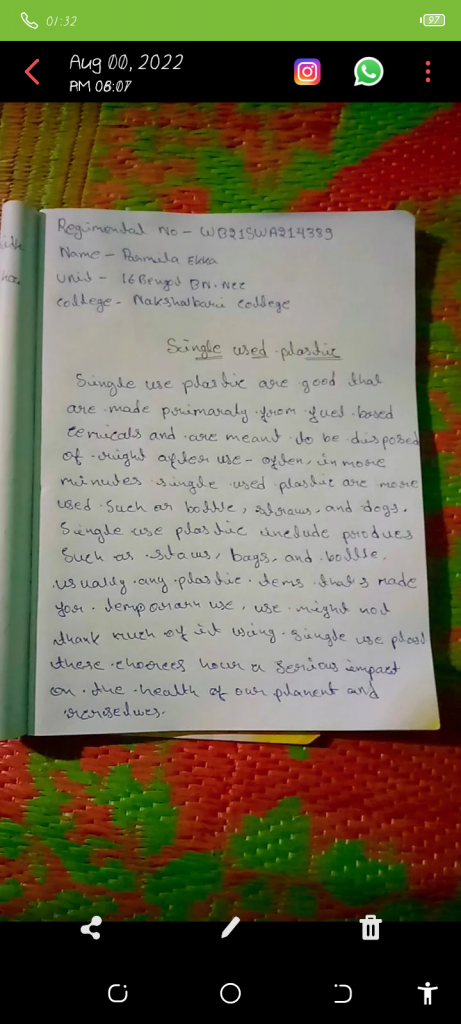 01:32
97
Aug 00, 2022
PM 08:07
Regimental No - WB21SWA214389
Name - Parmela Ekka
Unit - 16 Bengol BN. NCC
College - Nakshalbari College
Single used plastic
Single use plastic are good that
are made primaraly from fuel based
cemicals and are meant to be disposed
of right after use - often, in more
minutes single used plastic are more
used such as bottle, straws, and dogs.
Single use plastic include produes
Such as staws, bags, and bottle.
usually any plastic items that s made
for temporary use, use might not
thank much of it using single use plast
these choices hour a serious impact
on the health of our planent and